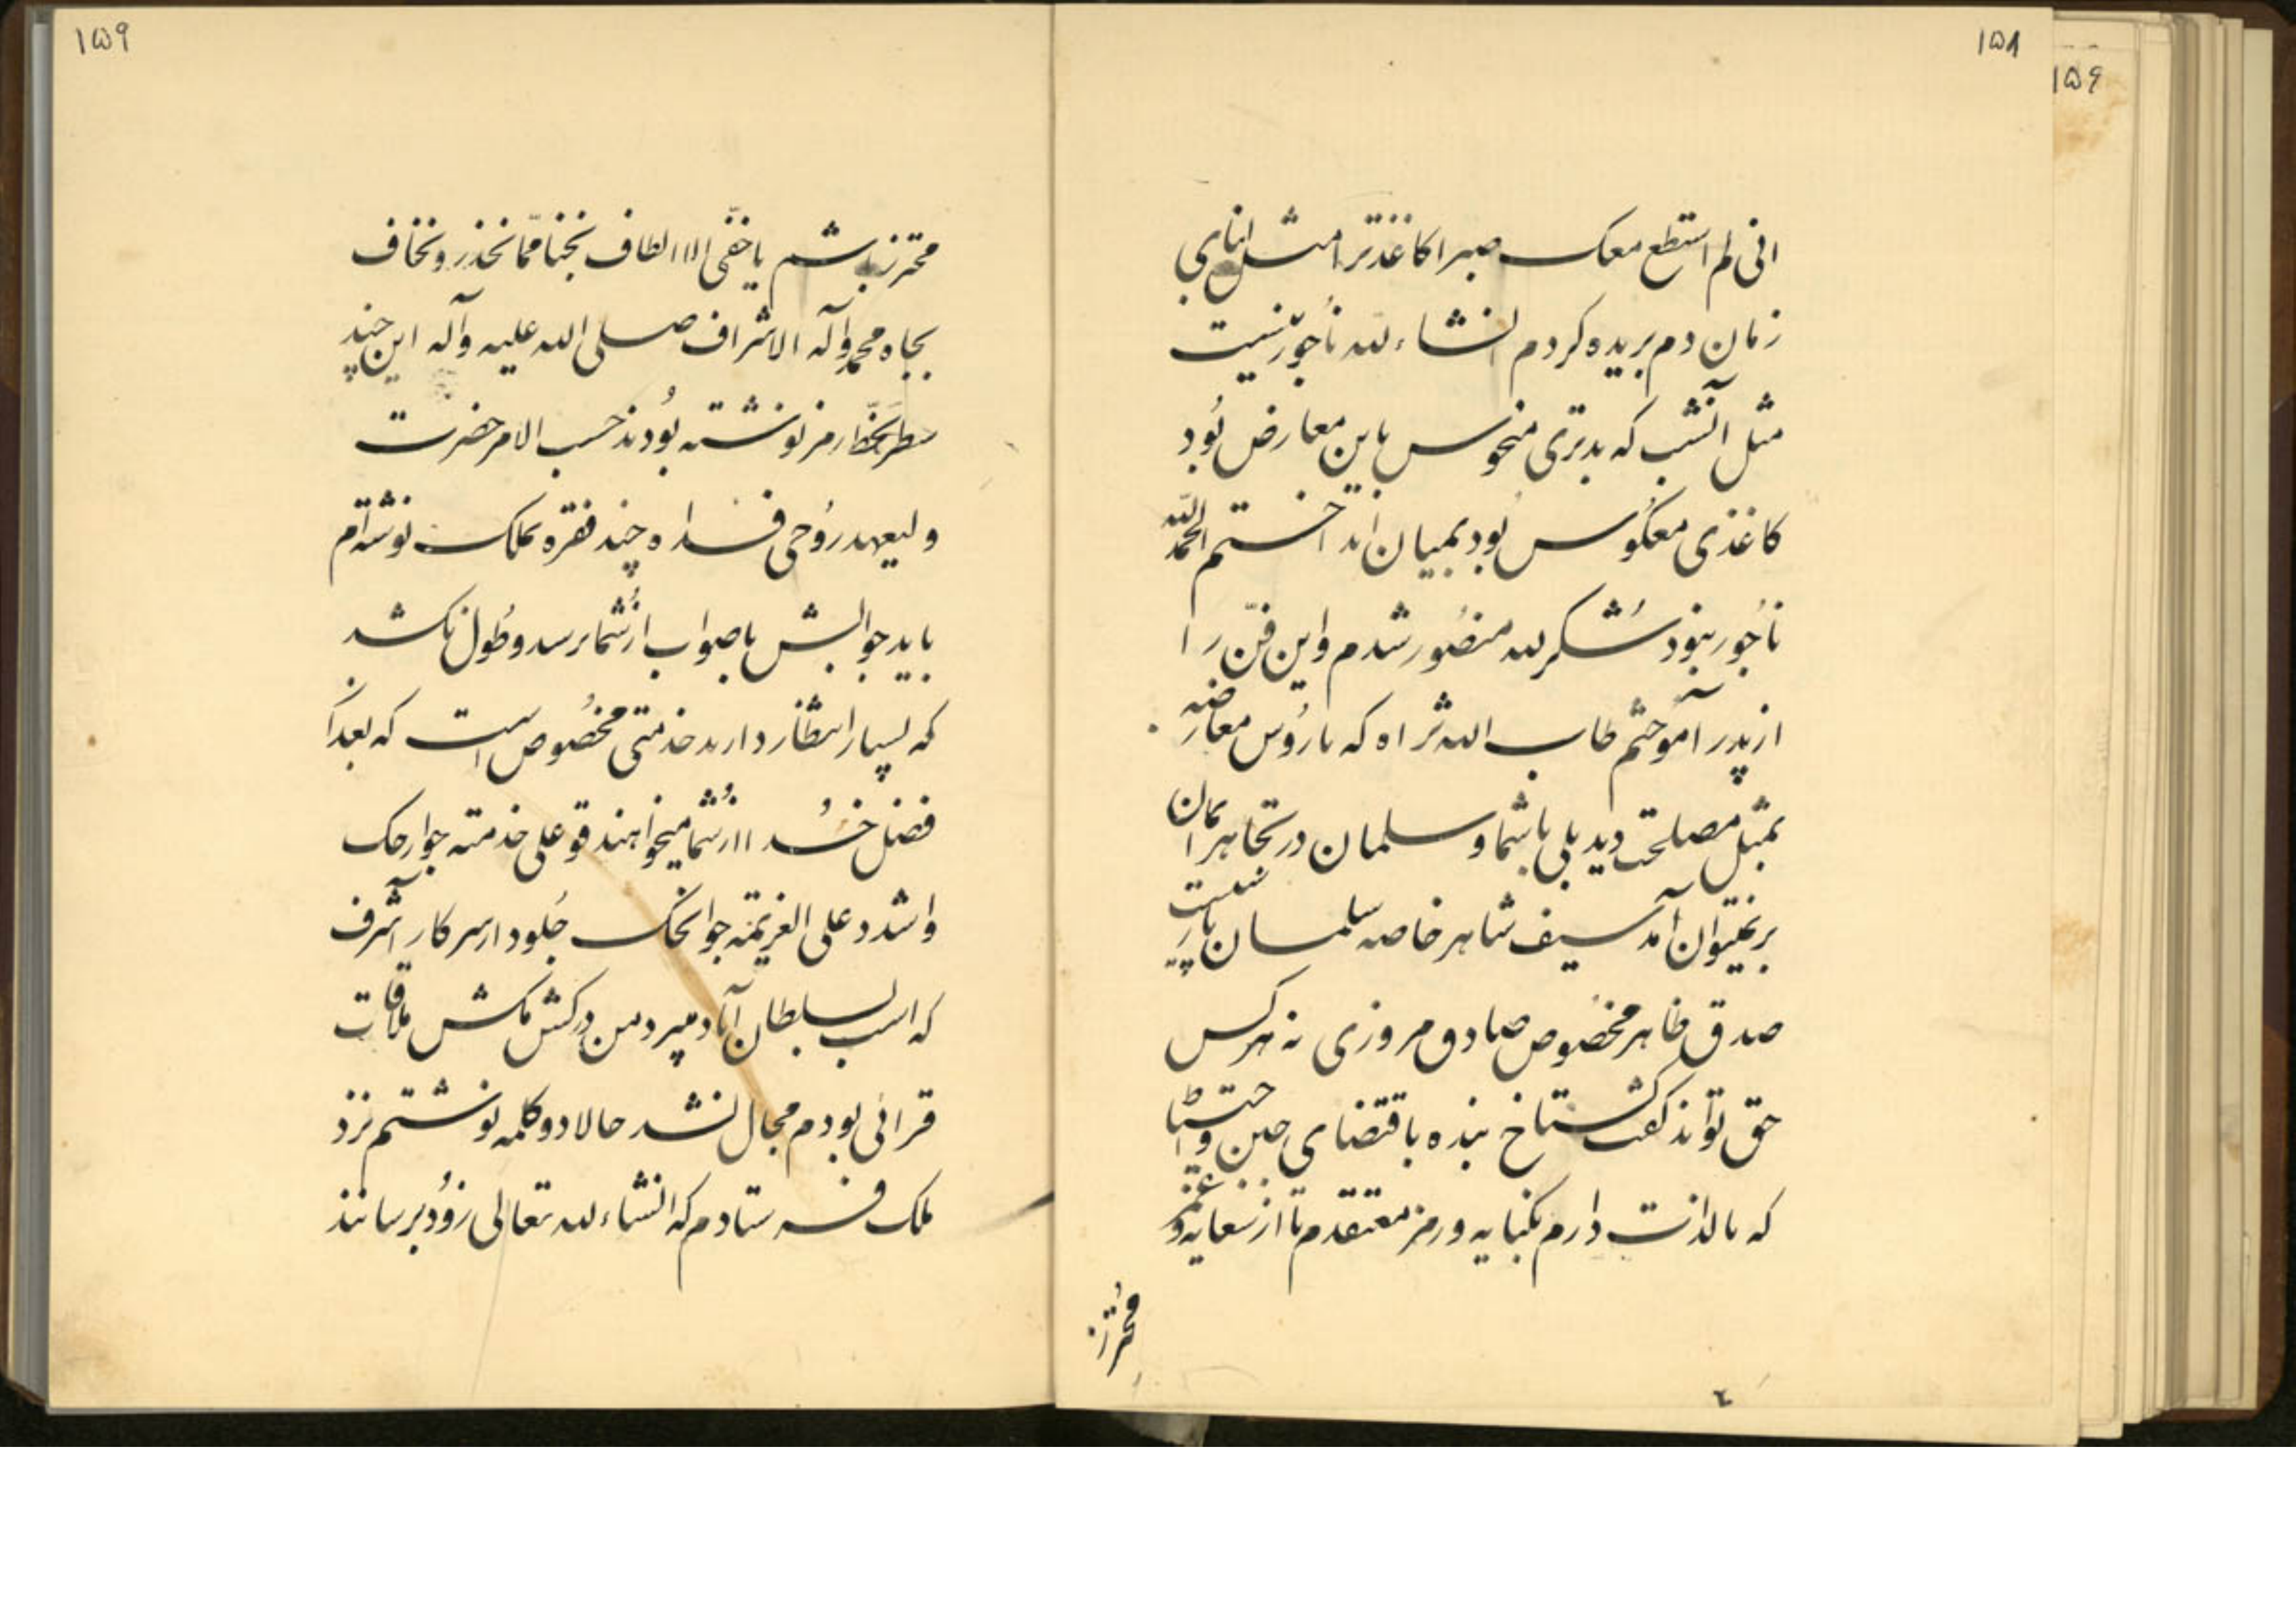 ۱۵۸
انی لم استطع معک صبرا کاغذ ترا مثل ابنای
زمان دم بریده کردم انشاء لله ناجور نیست
مثل آنشب که بدتری منحوس باین معارض بود
کاغذی معکوس بود بمیان انداختم الحمدلله
ناجور نبود شکر لله منصور شدم و این فن را
از پدر آموختم طاب الله ثراه که با روس معارضه
بمثل مصلحت دید بلی با شما و سلمان در تجاهر ایمان
بر نمیتوان آمد سیف شاهر خاصه سلمان پارسیست
صدق ظاهر مخصوص صادق مروزی نه هرکس
حق تواند گفت گستاخ بنده باقتضای جبن و احتیاط
که بالذات دارم بکنایه و رمز معتقدم تا از سعایه و غمز
محترز
۱۵۹
محترز باشم یا خفی الالطاف نجنا مما نحذر و نخاف
بجاه محمد وآله الاشراف صلی الله علیه وآله این چند
سطر بخط رمز نوشته بودند حسب الامر حضرت
ولیعهد روحی فداه چند فقره بملک نوشته‌ام
باید جوابش باصواب از شما برسد و طول نکشد
که بسیار انتظار دارند خدمتی مخصوص است که بعد از
فضل خدا از شما میخواهند قو علی خدمته جوارحک
واشدد علی العزیمة جوانحک جلودار سرکار اشرف
که اسب بسلطان آباد میبرد من در کش مکش ملاقات
قرائی بودم مجال نشد حالا دو کلمه نوشتم نزد
ملک فرستادم که انشاء لله تعالی زود برسانند
۱۵۶